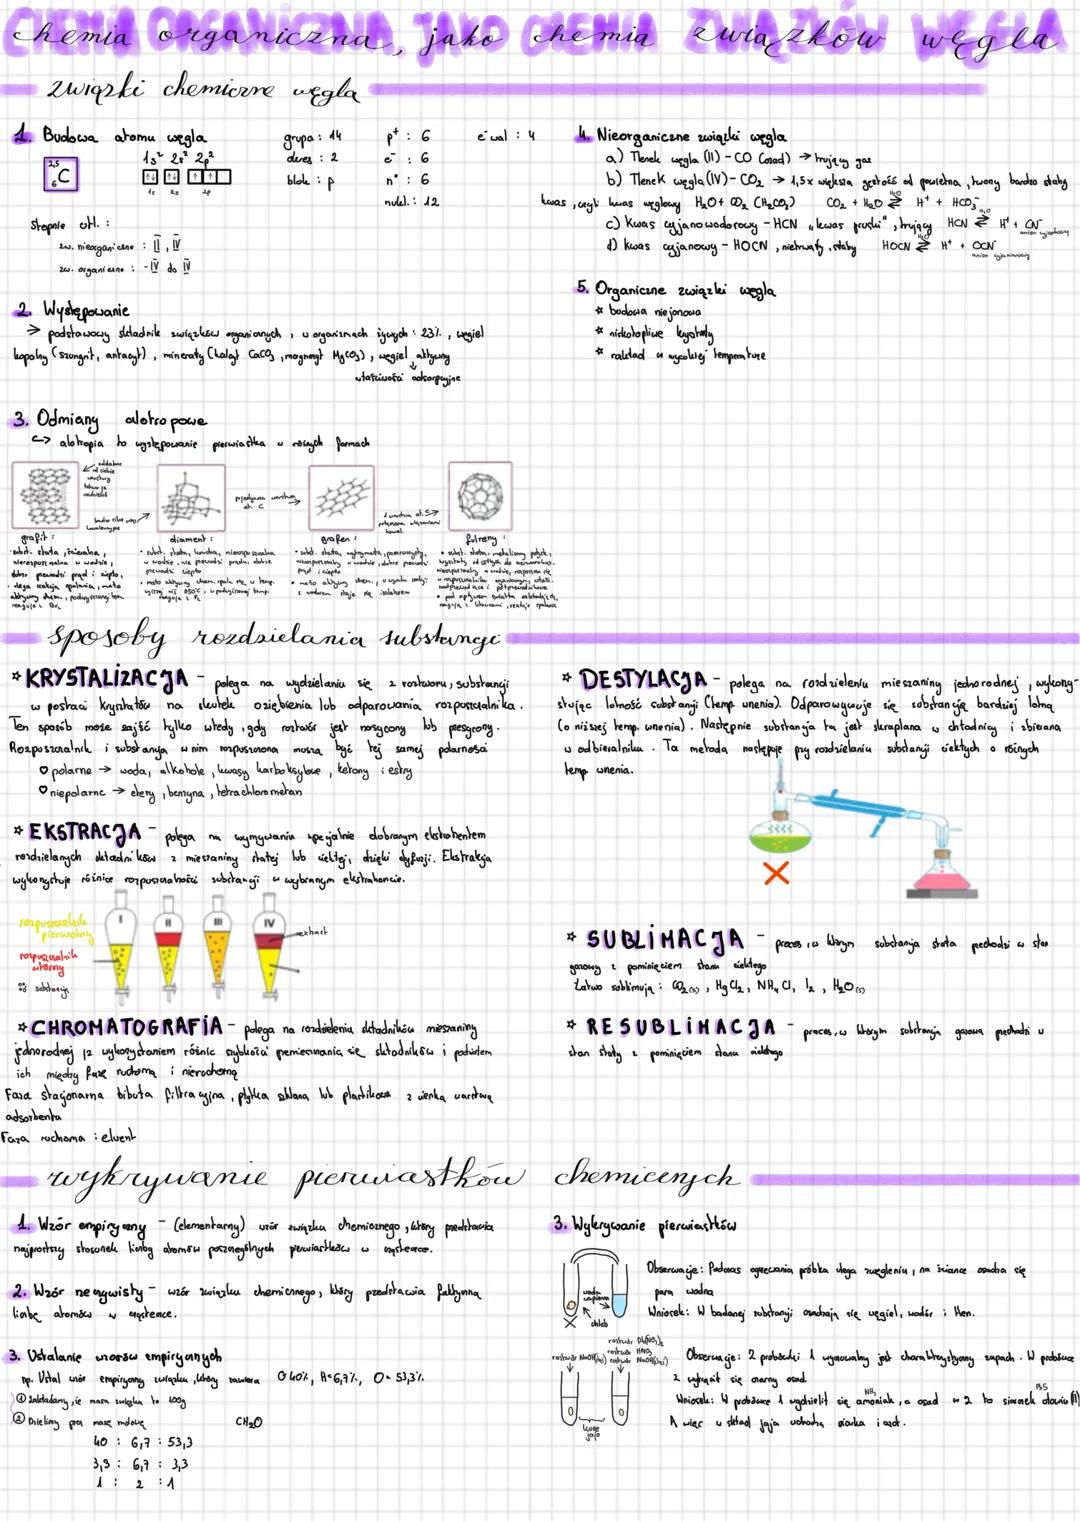 chemia organiczna, jako chemia związków węgla
związki chemiczne węgla
1. Budowa atomu węgla
1s² 2s² 2p²
2,5
C
6
1s 2s 2p
grupa : 14
okres : 2
blok : p
p⁺ : 6
e⁻ : 6
n° : 6
nukl. : 12
e⁻ wal : 4
stopnie utl. :
zw. nieorganiczne : II, IV
zw. organiczne : -IV do IV
2. Występowanie
→ podstawowy składnik związków organicznych, w organizmach żywych : 23%, węgiel
kopalny (szungit, antracyt), minerały (kalcyt CaCO₃, magnezyt MgCO₃), węgiel aktywny
właściwości adsorpcyjne
3. Odmiany alotropowe
↪ alotropia to występowanie pierwiastka w różnych formach
pojedyncza warstwa
at. C
grafit :
diament :
grafen :
fulereny :
4. Nieorganiczne związki węgla
a) Tlenek węgla (II) - CO (czad) → trujący gaz
b) Tlenek węgla (IV) - CO₂ → 1,5x większa gęstość od powietrza, tworzy bardzo słaby
kwas, czyli kwas węglowy H₂O + CO₂ (H₂CO₃) CO₂ + H₂O ⇄ H⁺ + HCO₃⁻
c) Kwas cyjanowodorowy - HCN „kwas pruski", trujący HCN ⇄ H⁺ + CN⁻
anion cyjankowy
d) kwas cyjanowy - HOCN, nietrwały, słaby HOCN ⇄ H⁺ + OCN⁻
anion cyjanianowy
5. Organiczne związki węgla
* budowa niejonowa
* niskotopliwe kryształy
* rozkład w wysokiej temperaturze
sposoby rozdzielania substancji
* KRYSTALIZACJA - polega na wydzielaniu się z roztworu, substancji
w postaci kryształów na skutek oziębienia lub odparowania rozpuszczalnika.
Ten sposób może zajść tylko wtedy, gdy roztwór jest nasycony lub przesycony.
Rozpuszczalnik i substancja w nim rozpuszczona muszą być tej samej polarności
♡ polarne → woda, alkohole, kwasy karboksylowe, ketony i estry
♡ niepolarne → etery, benzyna, tetrachlorometan
* EKSTRACJA - polega na wymywaniu specjalnie dobranym ekstrahentem
rozdzielanych składników z mieszaniny stałej lub ciekłej, dzięki dyfuzji. Ekstrakcja
wykorzystuje różnice rozpuszczalności substancji w wybranym ekstrahencie.
rozpuszczalnik
pierwotny
rozpuszczalnik
wtórny
substancja
I II III IV
extract
* CHROMATOGRAFIA - polega na rozdzieleniu składników mieszaniny
jednorodnej z wykorzystaniem różnic szybkości przemieszczania się składników i podziałem
ich między fazę ruchomą i nieruchomą
Faza stacjonarna bibuła filtracyjna, płytka szklana lub plastikowa z cienką warstwą
adsorbenta
Faza ruchoma : eluent
* DESTYLACJA - polega na rozdzieleniu mieszaniny jednorodnej, wykorzy-
stując lotność substancji (temp. wrzenia). Odparowywuje się substancję bardziej lotną
(o niższej temp. wrzenia). Następnie substancja ta jest skraplana w chłodnicy i zbierana
w odbieralniku. Ta metoda następuje przy rozdzielaniu substancji ciekłych o różnych
temp. wrzenia.
* SUBLIMACJA - proces, w którym substancja stała przechodzi w stan
gazowy z pominięciem stanu ciekłego
Łatwo sublimują : CO₂(s), HgCl₂, NH₄Cl, I₂, H₂O(s)
* RESUBLIMACJA - proces, w którym substancja gazowa przechodzi w
stan stały z pominięciem stanu ciekłego
wykrywanie pierwiastków chemicznych
1. Wzór empiryczny - (elementarny) wzór związku chemicznego, który przedstawia
najprostszy stosunek liczby atomów poszczególnych pierwiastków w cząsteczce.
2. Wzór rzeczywisty - wzór związku chemicznego, który przedstawia faktyczną
liczbę atomów w cząsteczce.
3. Ustalanie wzorów empirycznych
np. Ustal wzór empiryczny związku, który zawiera C 40%, H = 6,7%, O = 53,3%.
① Zakładamy, że masa związku to 100g
② Dzielimy przez masę molową
CH₂O
40 : 6,7 : 53,3
3,3 : 6,7 : 3,3
1 : 2 : 1
3. Wykrywanie pierwiastków
woda
wapienna
chleb
Obserwacje: Podczas ogrzewania próbka ulega zwęgleniu, na ściance osadza się
para wodna
Wniosek: W badanej substancji znajdują się węgiel, wodór i tlen.
roztwór Pb(NO₃)₂
roztwór HNO₃
roztwór NaOH(st) roztwór NaOH(st)
kurze
jajo
Obserwacje: Z probówki 1 wyczuwalny jest charakterystyczny zapach. W probówce
2 wytrącił się czarny osad.
Wniosek: W probówce 1 wydzielił się amoniak NH₃, a osad w 2 to siarczek ołowiu (II) PbS
A więc w skład jaja wchodzą siarka i azot.